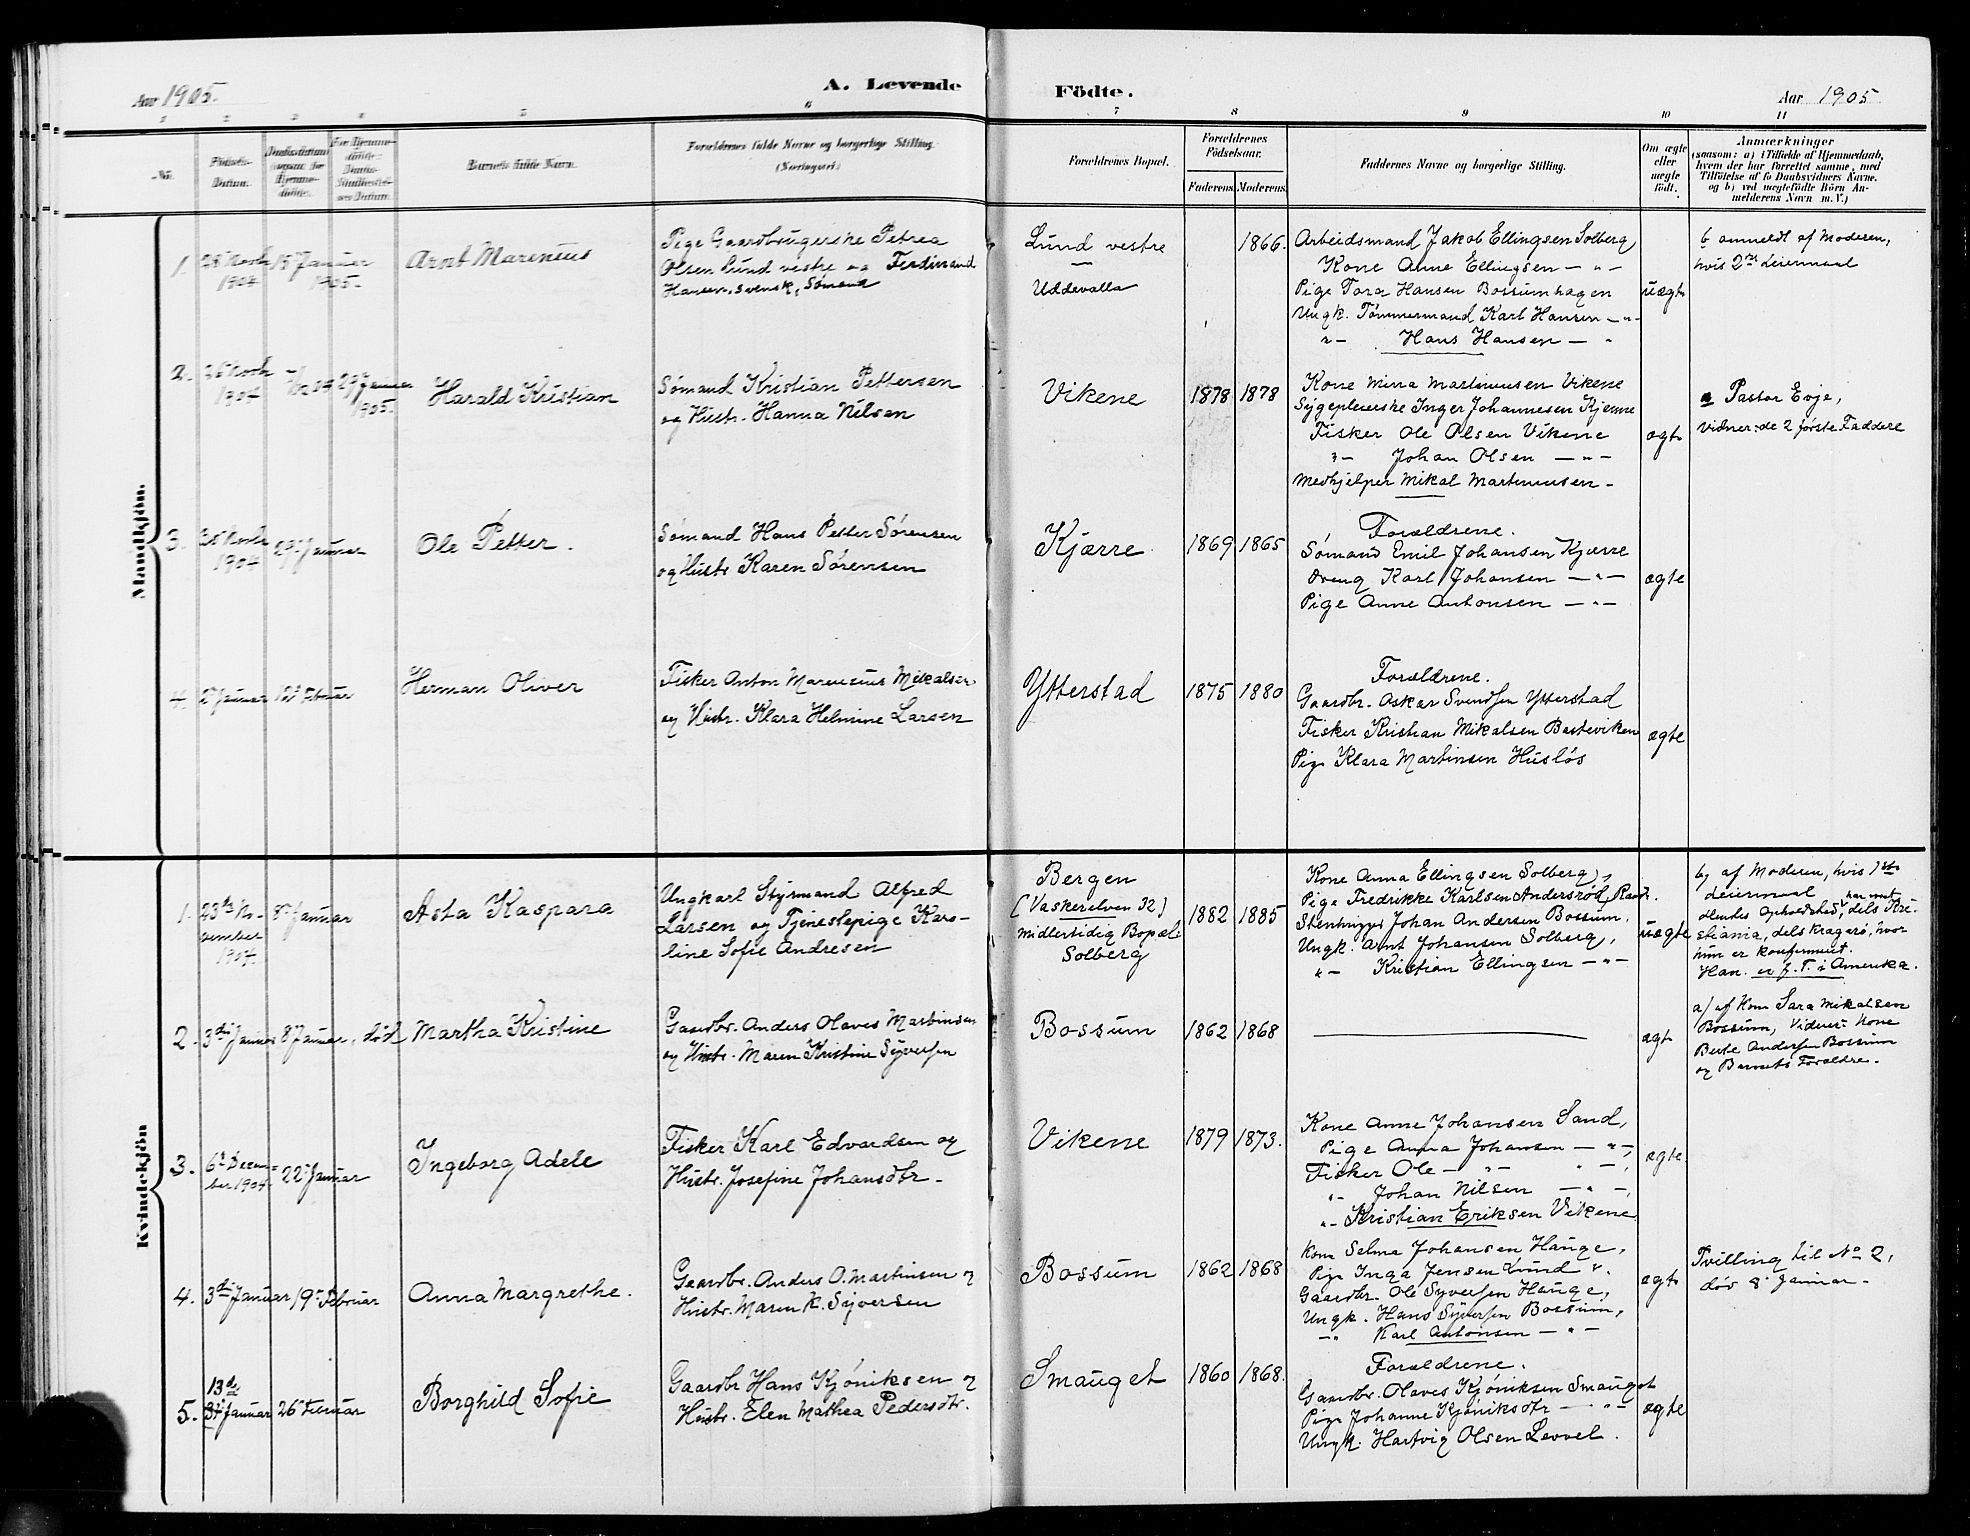 Aar 1905.
A. Levende
Födte.
Aar 1905
1 2 3 4 5 6 7 8 9 10 11
No.
Födsels-
Datum.
Barnets fulde Navn.
Forældrenes fulde Navne og borgerlige Stilling.
(Næringsvei)
Forældrenes Bopæl.
Forældrenes
Födselsaar.
Faderens
Moderens
Faddernes Navne og borgerlige Stilling.
Om ægte
eller
uægte
födt.
Anmærkninger
(saasom: a) i Tilfælde af Hjemmedaab,
hvem der har forrettet samme, med
Tilföielse af to Daabsvidners Navne,
og b) ved uægtefödte Börn An-
melderens Navn m. V.)
Mandkjön.
1.
28 Novbr
1904
15 Januar
1905.
Arnt Marenius
Pige Gaardbrugerske Petrea
Olsen Lund vestre og Ferdinand
Hansen, svensk, Sømand
Lund vestre
Uddevalla
1866.
Arbeidsmand Jakob Ellingsen Solberg
Kone Anne Ellingsen — " —
Pige Tora Hansen Bossumhagen
Ungk. Tømmermand Karl Hansen — " -
" — Hans Hansen — "
uægte
b anmeldt af Moderen,
hvis 2det Leiermaal
2.
26 Novbr
1904
29 Januar
1905.
Harald Kristian
Sømand Kristian Pettersen
og Hustr. Hanna Nilsen
Vikene
1878
1878
Kone Mina Martinusen Vikene
Sygepleierske Inger Johannesen Kjenne
Fisker Ole Olsen Vikene
" — Johan Olsen — " —
Medhjelper Mikal Martinusen -
ægte
a Pastor Evje,
Vidner: de 2 første Faddere
3.
Novbr
1904
29 Januar
Ole Petter.
Sømand Hans Petter Sørensen
og Hustr. Karen Sørensen
Kjærre
1869
1865
Forældrene.
Sømand Emil Johansen Kjærre
Dreng Karl Johansen — " —
Pige Anne Antonsen — " —
ægte
4.
2 Januar
12 Februar
Herman Oliver
Fisker Anton Marenius Mikalsen
og Hustr. Klara Helmine Larsen
Ytterstad
1875
1880
Forældrene.
Gaardbr. Oskar Svendsen Ytterstad
Fisker Kristian Mikalsen Basteviken
Pige Klara Martinsen Husløs
ægte
Kvindekjön
1.
23de No-
vember
1904
8 Januar
Asta Kaspara
Ungkarl Styrmand Alfred
Larsen og Tjenestepige Karo-
line Sofie Andresen
Bergen
(Vaskerelven 32)
midlertidig Bopæl:
Solberg
1882
1885
Kone Anna Ellingsen Solberg,
Pige Fredrikke Karlsen Andersrød,
Stenhugger Johan Andersen Bossum,
Ungk. Arnt Johansen Solberg,
" — Kristian Ellingsen — " —
uægte
b, af Moderen, hvis 1ste
Leiermaal
Opholdsted, har vært dels Kri-
stiania, dels Kragerø, hvor
hun er konfirmeret.
Han er f. T. i Amerika.
2.
3di Januar
8 Januar, død
Martha Kristine
Gaardbr. Anders Olaves Martinsen
og Hustr. Maren Kristine Syversen
Bossum
1862
1868
ægte
a) af Kone Sara Mikalsen
Bossum, Vidner: Kone
Berte Andersen Bossum
og Barnets Forældre.
3.
6te Decem-
ber 1904
22 Januar
Ingeborg Adele
Fisker Karl Edvardsen og
Hustr. Josefine Johansdtr.
Vikene
1879
1873.
Kone Anne Johansen Sand,
Pige Anna Johansen — " —,
Fisker Ole — " — " —,
" - Johan Nilsen — " —,
" - Kristian Eriksen Vikene
ægte.
4.
3di Januar
19 Februar
Anna Margrethe.
Gaardbr. Anders O. Martinsen og
Hustr. Maren K. Syversen
Bossum
1862
1868
Kone Selma Johansen Hauge,
Pige Inga Jensen Lund v.
Gaardbr. Ole Syversen Hauge,
Ungk. Hans Syversen Bossum,
— " Karl Antonsen — " —
ægte
Tvilling til No 2,
død 8 Januar.
5.
13de
Januar
26 Februar
Borghild Sofie
Gaardbr Hans Kjøniksen og
Hustr. Elen Mathea Pedersdtr.
Smauget
1860
1868.
Forældrene.
Gaardbr. Olaves Kjøniksen Smauget
Pige Johanne Kjøniksdtr — " —
Ungk. Hartvig Olsen Levvel.
ægte